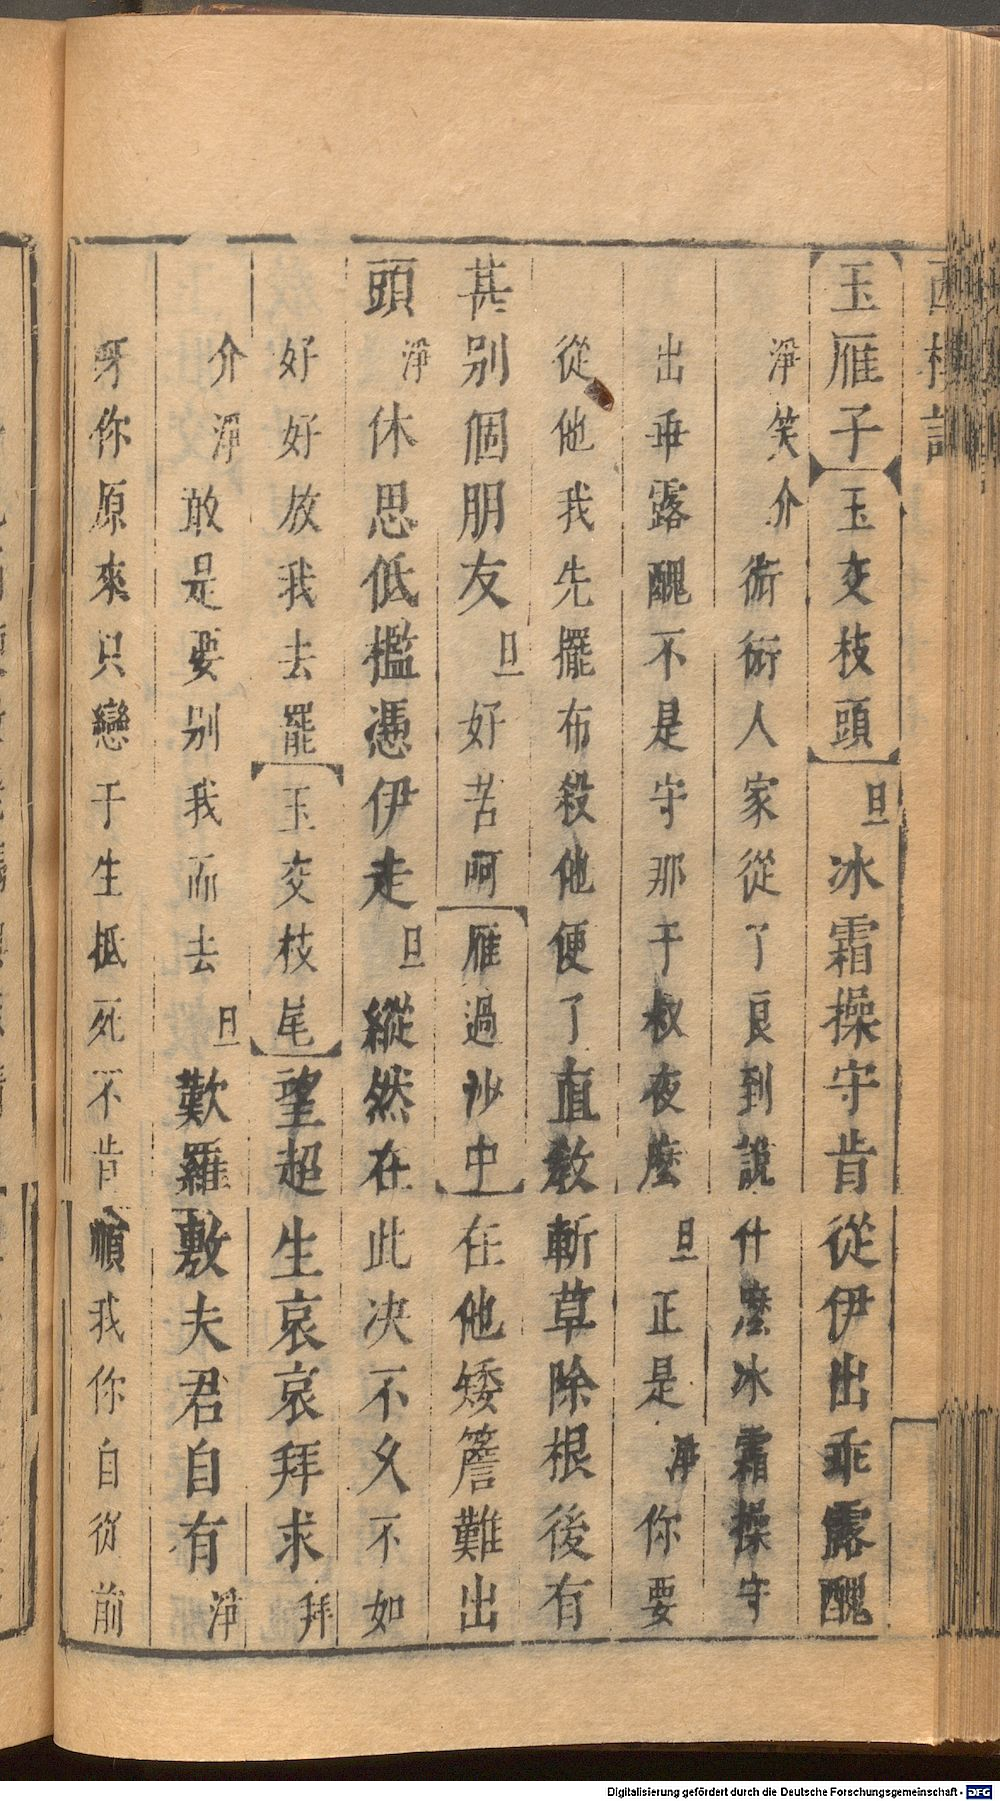 西樓記
玉雁子玉交枝頭旦冰霜操守肯從伊出乖露醜
淨笑介術術人家從了良到說什麽冰霜操守
出乖露醜不是守那于叔夜麽旦正是淨你要
從他我先擺布殺他便了直教斬草除根後有
甚別個朋友旦好苦呵雁過沙中在他矮簷難出
頭淨休思低檻憑伊走旦縱然在此决不久不如
好好放我去罷玉交枝尾望超生哀哀拜求拜
介淨敢是要別我而去旦歎羅敷夫君自有淨
呀你原來只戀于生抵死不肯順我你自從前
Digitalisierung gefördert durch die Deutsche Forschungsgemeinschaft - DFG